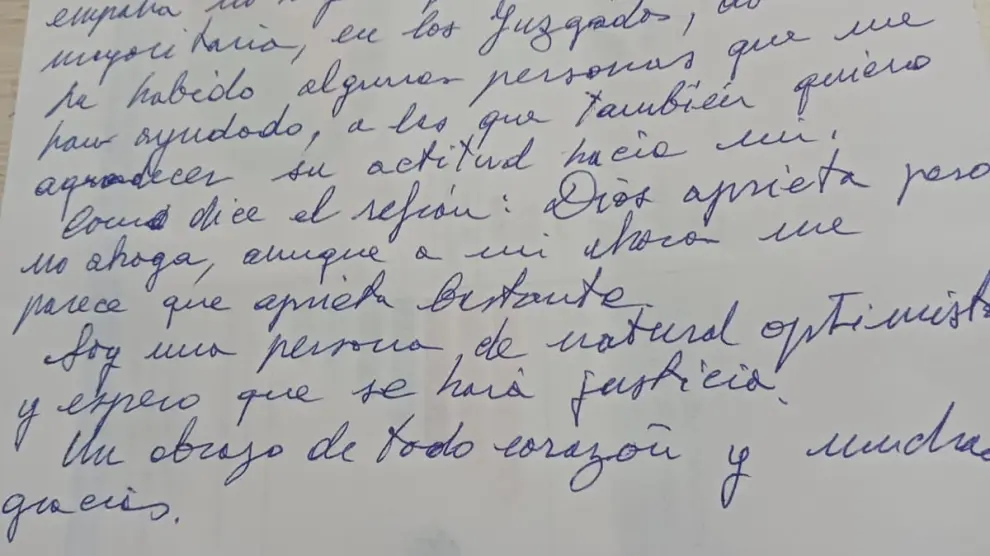 mayoritaria, en los Juzgados,
ha habido algunas personas que me
han ayudado, a las que también quiero
agradecer su actitud hacia mi.
Como dice el refrán: Dios aprieta pero
no ahoga, aunque a mi ahora me
parece que aprieta bastante.
Soy una persona, de natural optimista
y espero que se hará justicia.
Un abrazo de todo corazón y muchas
gracias.